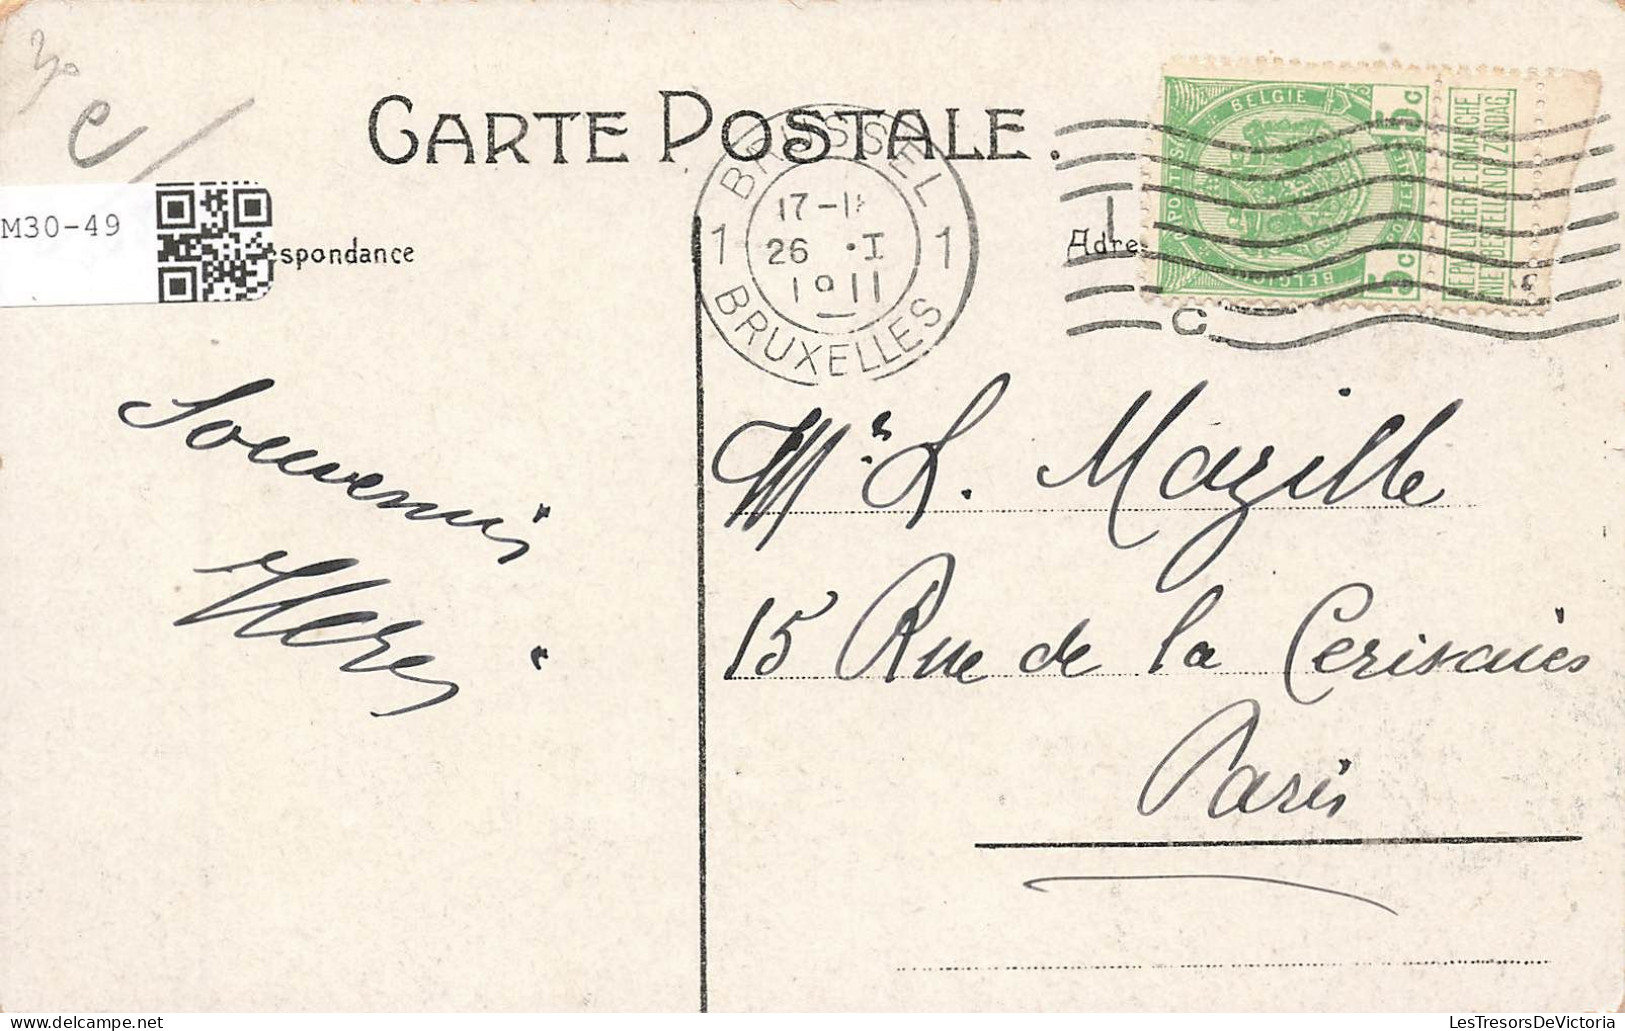 CARTE POSTALE.
M30-49
espondance
Adre
BRUSSEL
17-1
26 I
1911
1 1
BRUXELLES
BELGIE
5c 5c
BELGIQUE
POSTES
NE PAS LIVRER LE DIMANCHE.
NIET BESTELLEN OP ZONDAG.
C
Souvenir
Mr L. Mazille
15 Rue de la Cerisaies
Paris
LesTresorsDeVictoria